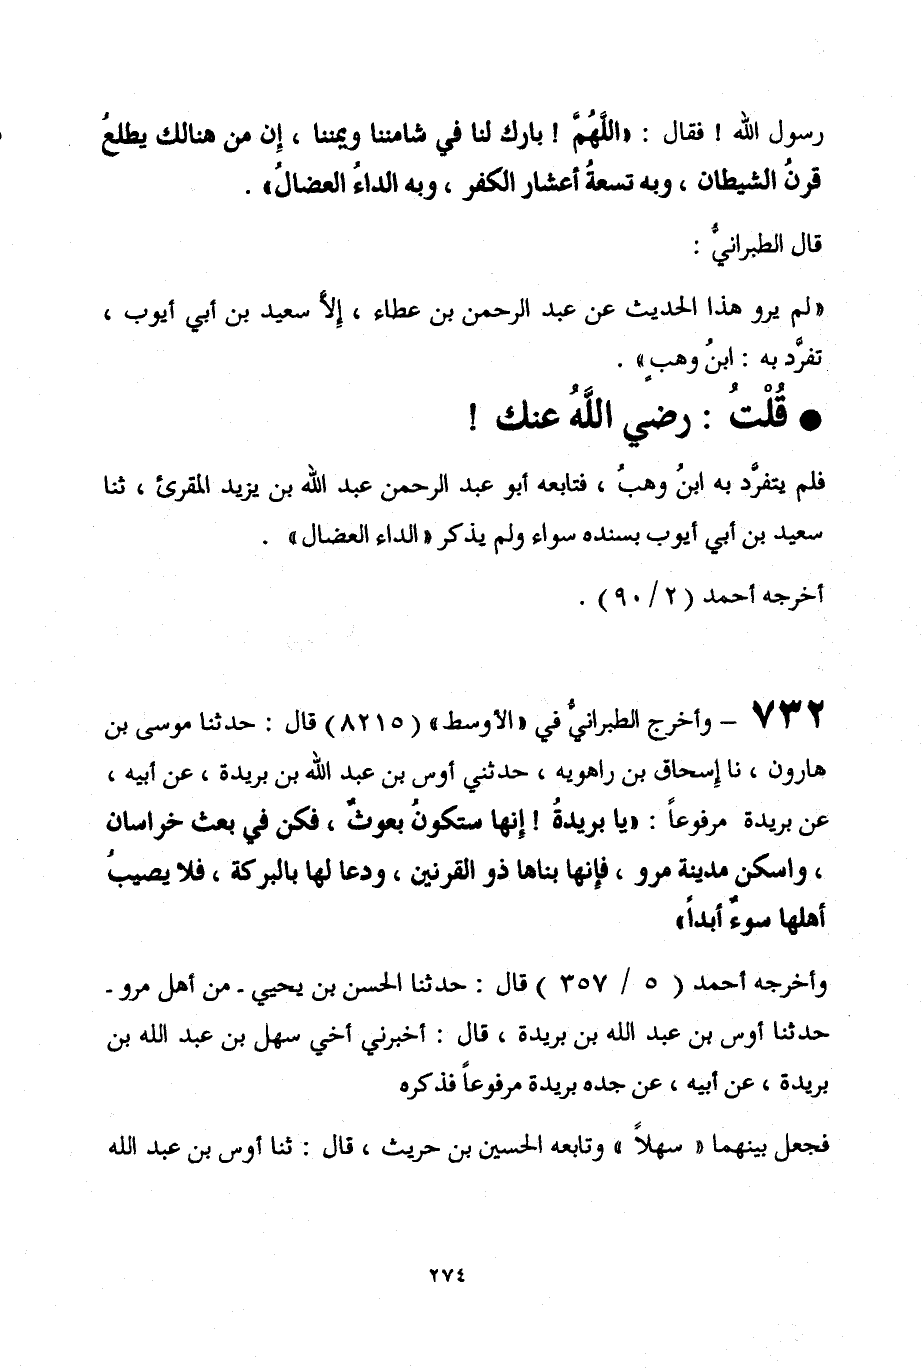 رسول الله ! فقال : «اللَّهُمَّ ! بارك لنا في شامننا ويمننا ، إن من هنالك يطلعُ
قرنُ الشيطان ، وبه تسعةُ أعشار الكفر ، وبه الداءُ العضالُ» .
قال الطبرانيُّ :
«لم يرو هذا الحديث عن عبد الرحمن بن عطاء ، إلاَّ سعيد بن أبي أيوب ،
تفرَّد به : ابنُ وهبٍ» .
● قُلْتُ : رضي اللَّهُ عنك !
فلم يتفرَّد به ابنُ وهبُ ، فتابعه أبو عبد الرحمن عبد الله بن يزيد المقرئ ، ثنا
سعيد بن أبي أيوب بسنده سواء ولم يذكر «الداء العضال» .
أخرجه أحمد ( ٢ / ٩٠ ) .
٧٣٢ – وأخرج الطبرانيُّ في «الأوسط» ( ٨٢١٥ ) قال : حدثنا موسى بن
هارون ، نا إسحاق بن راهويه ، حدثني أوس بن عبد الله بن بريدة ، عن أبيه ،
عن بريدة مرفوعاً : «يا بريدةُ ! إنها ستكونُ بعوثٌ ، فكن في بعث خراسان
، واسكن مدينة مرو ، فإنها بناها ذو القرنين ، ودعا لها بالبركة ، فلا يصيبُ
أهلها سوءٌ أبداً»
وأخرجه أحمد ( ٥ / ٣٥٧ ) قال : حدثنا الحسن بن يحيي ـ من أهل مرو ـ
حدثنا أوس بن عبد الله بن بريدة ، قال : أخبرني أخي سهل بن عبد الله بن
بريدة ، عن أبيه ، عن جده بريدة مرفوعاً فذكره
فجعل بينهما « سهلاً » وتابعه الحسين بن حريث ، قال : ثنا أوس بن عبد الله
٢٧٤